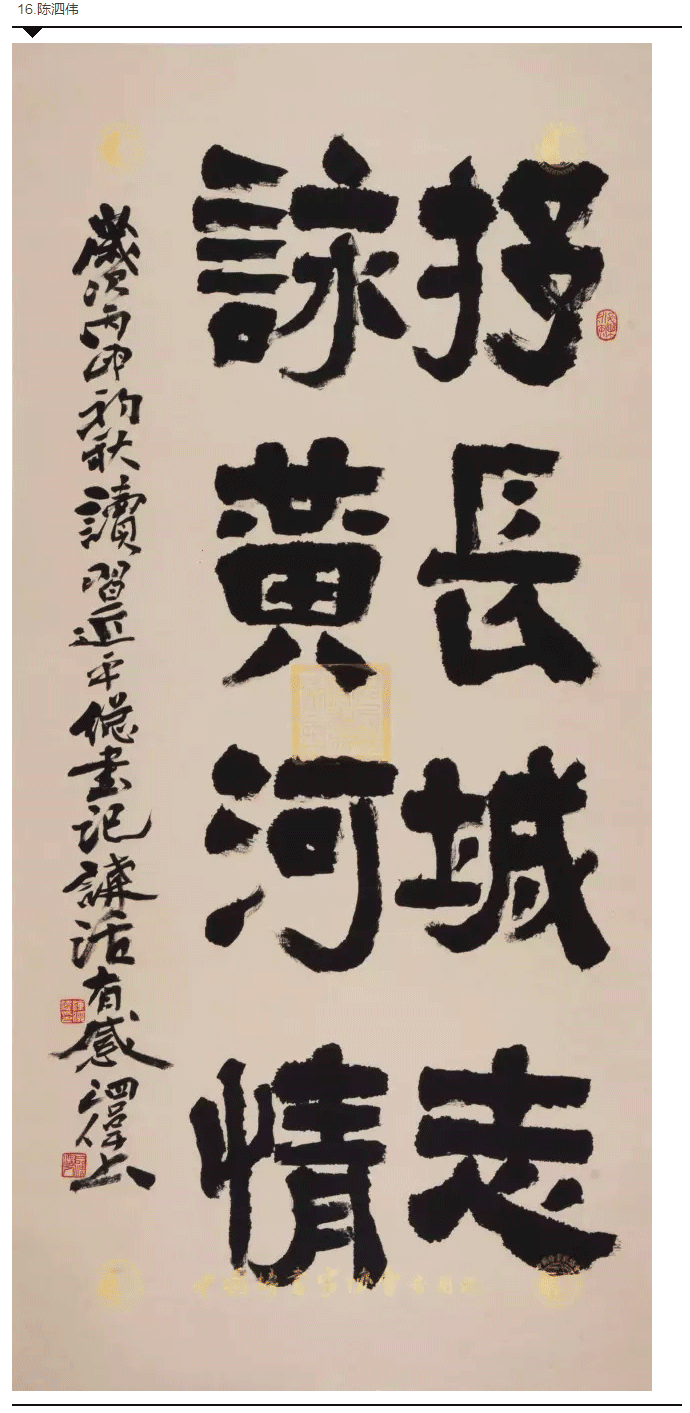 16.陈泗伟
抒長城志
詠黄河情
歲次丙申初秋讀習近平總書記講話有感泗偉上